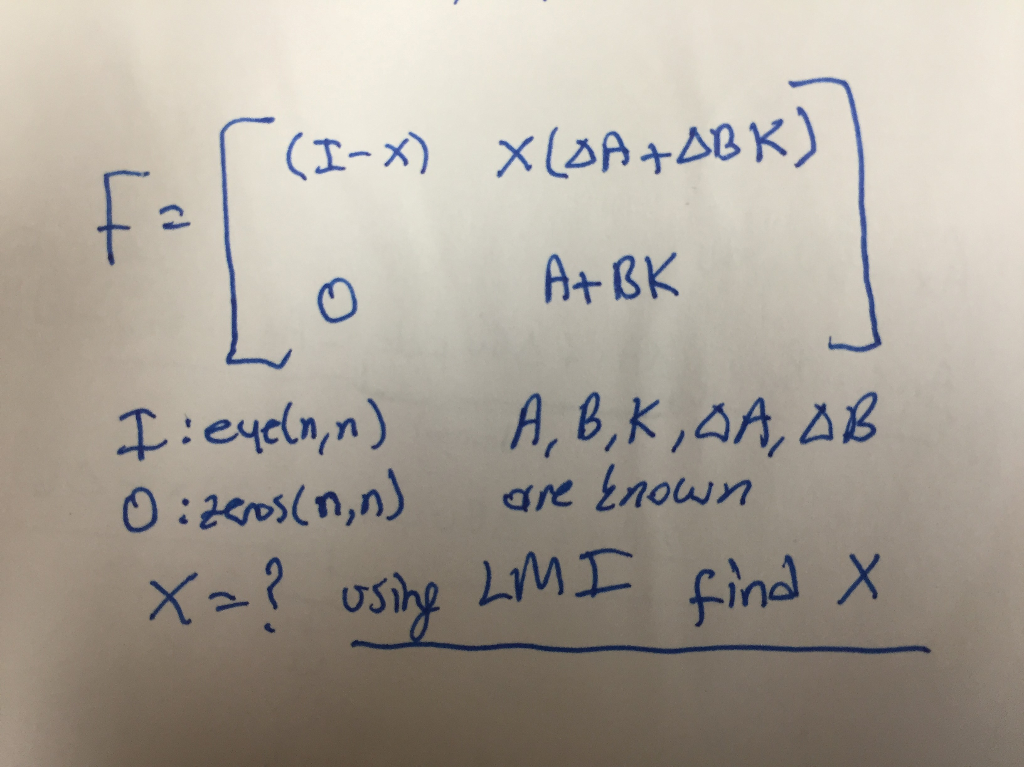 F = [ (I-X) X(ΔA+ΔBK)
0 A+BK ]
I : eye(n,n) A, B, K, ΔA, ΔB
0 : zeros(n,n) are known
X = ? using LMI find X